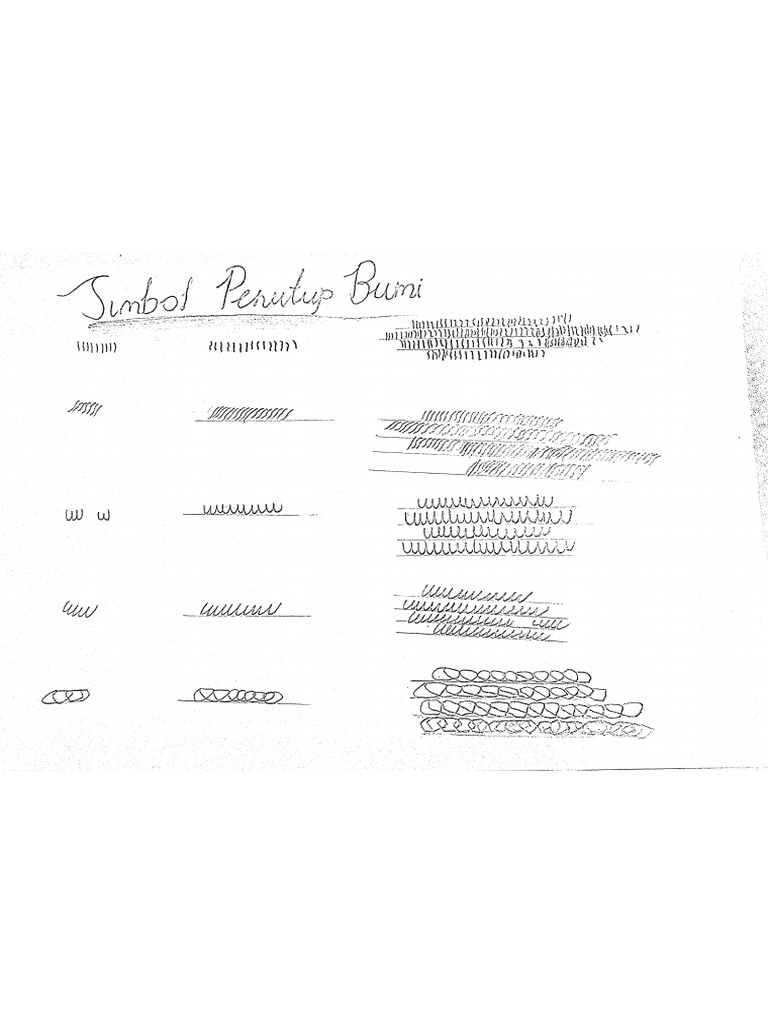 Simbol Penutup Bumi